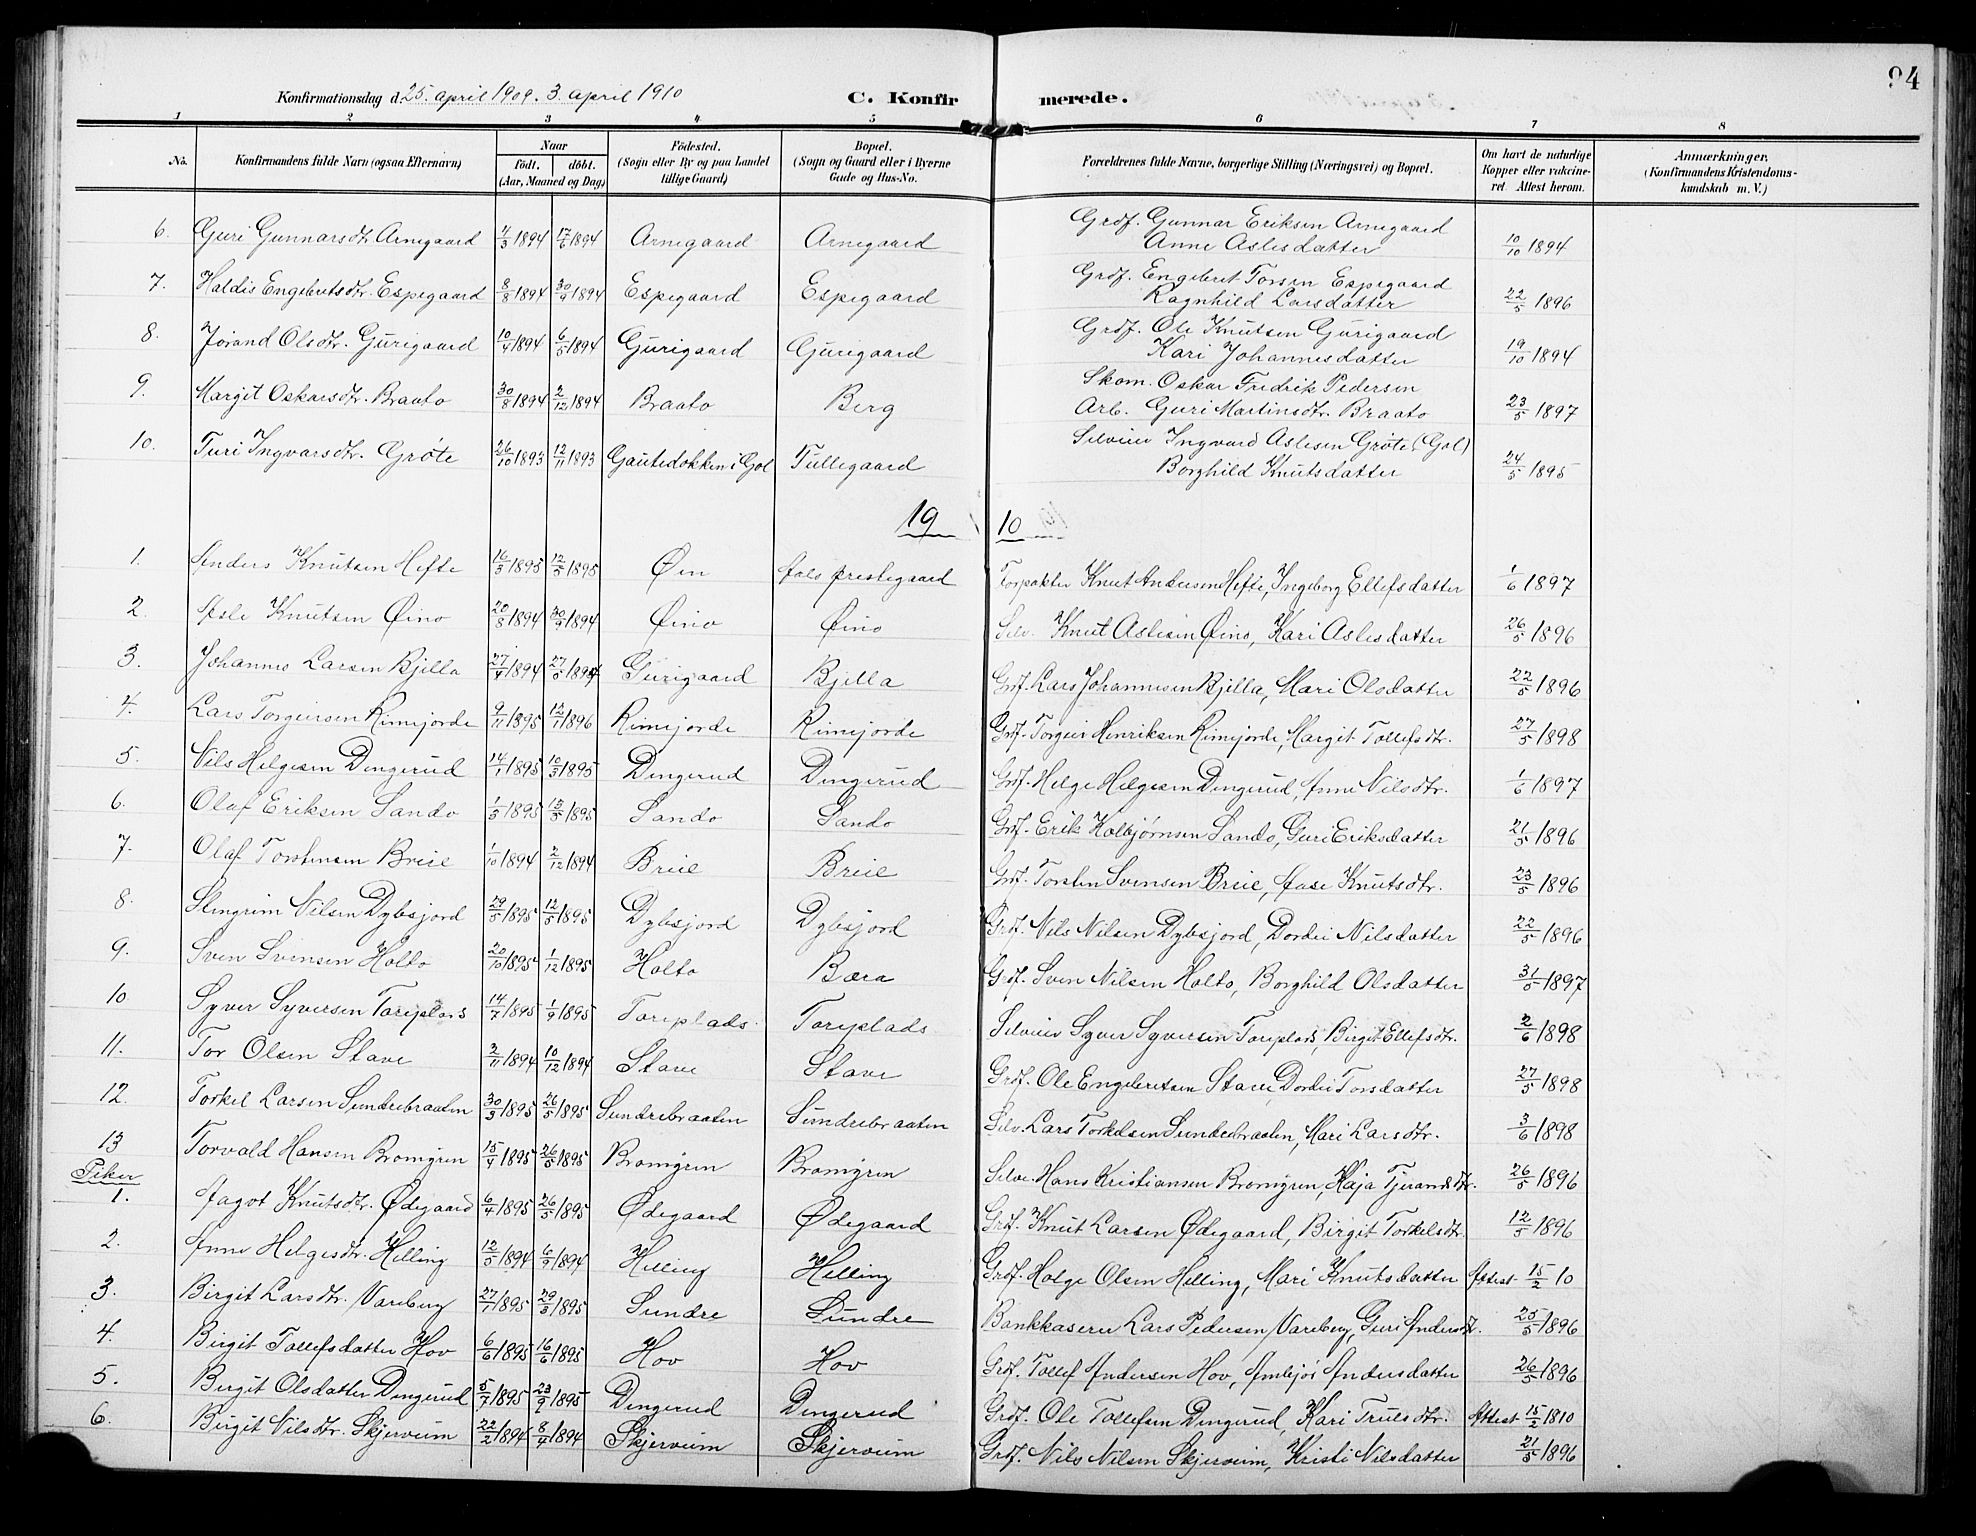 94
Konfirmationsdag d. 25. april 1909. 3 april 1910 C. Konfirmerede.
1 2 3 4 5 6 7 8
No. Konfirmandens fulde Navn (ogsaa Efternavn) Naar født. døbt. (Aar, Maaned og Dag) Fødested. (Sogn eller By og paa Landet tillige Gaard) Bopæl. (Sogn og Gaard eller i Byerne Gade og Hus-No. Forældrenes fulde Navne, borgerlige Stilling (Næringsvei) og Bopæl. Om havt de naturlige Kopper eller vaccineret Attest herom. Anmærkninger. (Konfirmandens Kristendomskundskab m. V.)
6. Guri Gunnarsdtr Arnegaard 4/3 1894 17/6 1894 Arnegaard Arnegaard Grdf. Gunnar Eriksen Arnegaard
Anne Aslesdatter 10/10 1894
7. Haldis Engebretsdtr. Espegaard 8/8 1894 30/9 1894 Espegaard Espegaard Grdf. Engebret Torsen Espegaard
Ragnhild Larsdatter 22/5 1896
8. Jørand Olsdtr. Gurigaard 10/4 1894 6/5 1894 Gurigaard Gurigaard Grdf. Ole Knutsen Gurigaard
Kari Johannesdatter 19/10 1894
9. Margit Oskarsdtr. Braato 30/8 1894 2/12 1894 Braato Berg Skom. Oskar Fredrik Pedersen
Arb. Guri Martinsdtr. Braato 23/5 1897
10. Turi Ingvarsdtr. Grøte 26/10 1893 12/11 1893 Gautedokken i Gol Tullegaard Selveier Ingvard Aslesen Grøte (Gol)
Borghild Knutsdatter 24/5 1895
1910
1. Anders Knutsen Hefte 16/3 1895 12/5 1895 Øen Aals prestegaard Forpakter Knut Andersen Hefte, Ingeborg Ellefsdatter 1/6 1897
2. Asle Knutsen Øino 20/8 1894 30/9 1894 Øino Øino Selv. Knut Aslesen Øino, Kari Aslesdatter 26/5 1896
3. Johannes Larsen Bjella 27/4 1894 27/5 1894 Gurigaard Bjella Grdf. Lars Johannesen Bjella, Mari Olsdatter 22/5 1896
4. Lars Torgeirsen Rimejorde 9/11 1895 12/1 1896 Rimejorde Rimejorde Grdf. Torgeir Henriksen Rimejorde, Margit Tollefsdtr. 27/5 1898
5. Nils Helgesen Dengerud 14/1 1895 10/3 1895 Dengerud Dengerud Grdf. Helge Helgesen Dengerud, Anne Nilsdtr. 1/6 1897
6. Olaf Eriksen Sando 1/3 1895 15/5 1895 Sando Sando Grdf. Erik Kolbjørnsen Sando, Guri Eriksdatter 21/5 1896
7. Olaf Torstensen Breie 1/10 1894 2/12 1894 Breie Breie Grdf. Torsten Svensen Breie, Aase Knutsdtr. 23/5 1896
8. Slengrim Nilsen Dybsjord 29/5 1895 12/5 1895 Dybsjord Dybsjord Grdf. Nils Nilsen Dybsjord, Dordei Nilsdatter 22/5 1896
9. Sven Svensen Holto 20/10 1895 1/12 1895 Holto Bæra Grdf. Sven Nilsen Holto, Borghild Olsdatter 31/5 1897
10 Syver Syversen Toreplads 14/7 1895 1/9 1895 Toreplads Toreplads Selveier Syver Syversen Toreplads, Birgit Ellefsdtr. 2/6 1898
11. Tor Olsen Stave 2/11 1894 10/12 1894 Stave Stave Grdf. Ole Engebretsen Stave, Dordei Torsdatter 27/5 1898
12. Torkel Larsen Sundrebraaten 30/3 1895 26/5 1895 Sundrebraaten Sundrebraaten Selv. Lars Torkelsen Sundrebraaten, Mari Larsdtr. 3/6 1898
13 Torvald Hansen Bromgren 15/4 1895 26/5 1895 Bromgren Bromgren Selve. Hans Kristiansen Bromgren, Kaja Tjerandsdtr. 26/5 1896
Piker
1. Aagot Knutsdtr. Ødegaard 6/4 1895 26/5 1895 Ødegaard Ødegaard Grdf. Knut Larsen Ødegaard, Birgit Torkelsdtr. 12/5 1896
2. Anne Helgesdtr. Helling 12/5 1894 6/5 1894 Helling Helling Grdf. Helge Olsen Helling, Mari Knutsdatter Attest 15/2 10
3. Birgit Larsdtr. Vareberg 27/1 1895 29/3 1895 Sundre Sundre Bankkaserer Lars Pedersen Vareberg, Guri Andersdtr. 25/5 1896
4. Birgit Tollefsdatter Hov 6/6 1895 16/6 1895 Hov Hov Grdf. Tollef Andersen Hov, Ambjør Andersdatter 26/5 1896
5. Birgit Olsdatter Dengerud 5/7 1895 23/9 1895 Dengerud Dengerud Grdf. Ole Tollefsen Dengerud, Kari Trulsdtr. Attest 15/2 1810
6. Birgit Nilsdtr. Skjerveim 22/2 1894 8/4 1894 Skjerveim Skjerveim Grdf. Nils Nilsen Skjerveim, Kristi Nilsdatter 21/5 1896